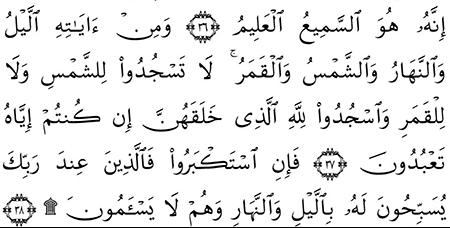 إِنَّهُۥ هُوَ ٱلسَّمِيعُ ٱلْعَلِيمُ ٣٦ وَمِنْ ءَايَٰتِهِ ٱلَّيْلُ
وَٱلنَّهَارُ وَٱلشَّمْسُ وَٱلْقَمَرُ ۚ لَا تَسْجُدُوا۟ لِلشَّمْسِ وَلَا
لِلْقَمَرِ وَٱسْجُدُوا۟ لِلَّهِ ٱلَّذِى خَلَقَهُنَّ إِن كُنتُمْ إِيَّاهُ
تَعْبُدُونَ ٣٧ فَإِنِ ٱسْتَكْبَرُوا۟ فَٱلَّذِينَ عِندَ رَبِّكَ
يُسَبِّحُونَ لَهُۥ بِٱلَّيْلِ وَٱلنَّهَارِ وَهُمْ لَا يَسْـَٔمُونَ ۩ ٣٨